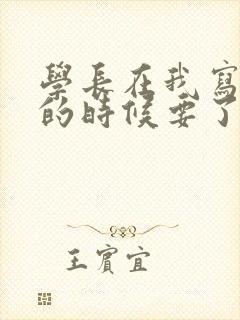 學長在我寫
的時候要了
王賓宜